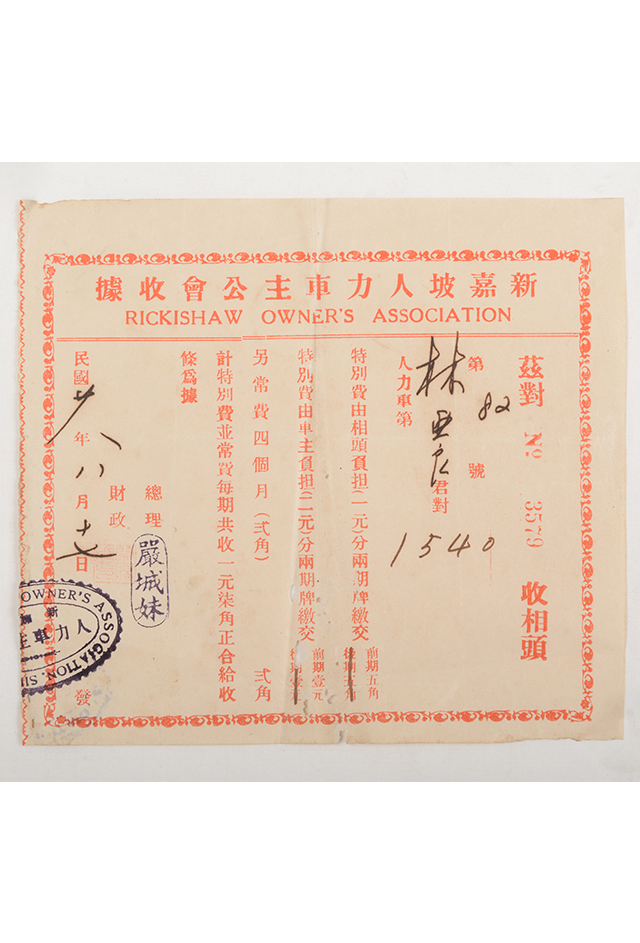 新嘉坡人力車主公會收據
RICKISHAW OWNER'S ASSOCIATION
茲對 No 3579 收相頭
第 82 號
林亜良君對
人力車第 1540
特別費由相頭負担(一元)分兩期牌繳交 前期五角 後期五角
特別費由車主負担(二元)分兩期牌繳交 前期壹元 後期壹元
另常費四個月(弍角) 弍角
計特別費並常費每期共收一元柒角正合給收
條爲據
總理
財政
嚴城妹
民國廿八年八月十七日 發
OWNER'S ASSOCIATION. SI
新
人力車主